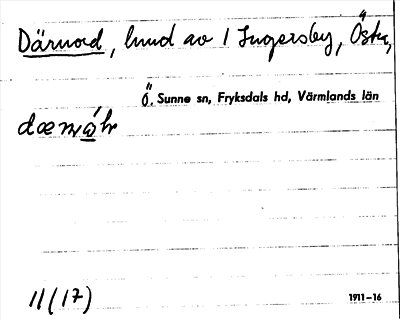 Därnord, hmd av 1 Ingersby, Östra,
Ö. Sunne sn, Fryksdals hd, Värmlands län
11(17)
1911–16